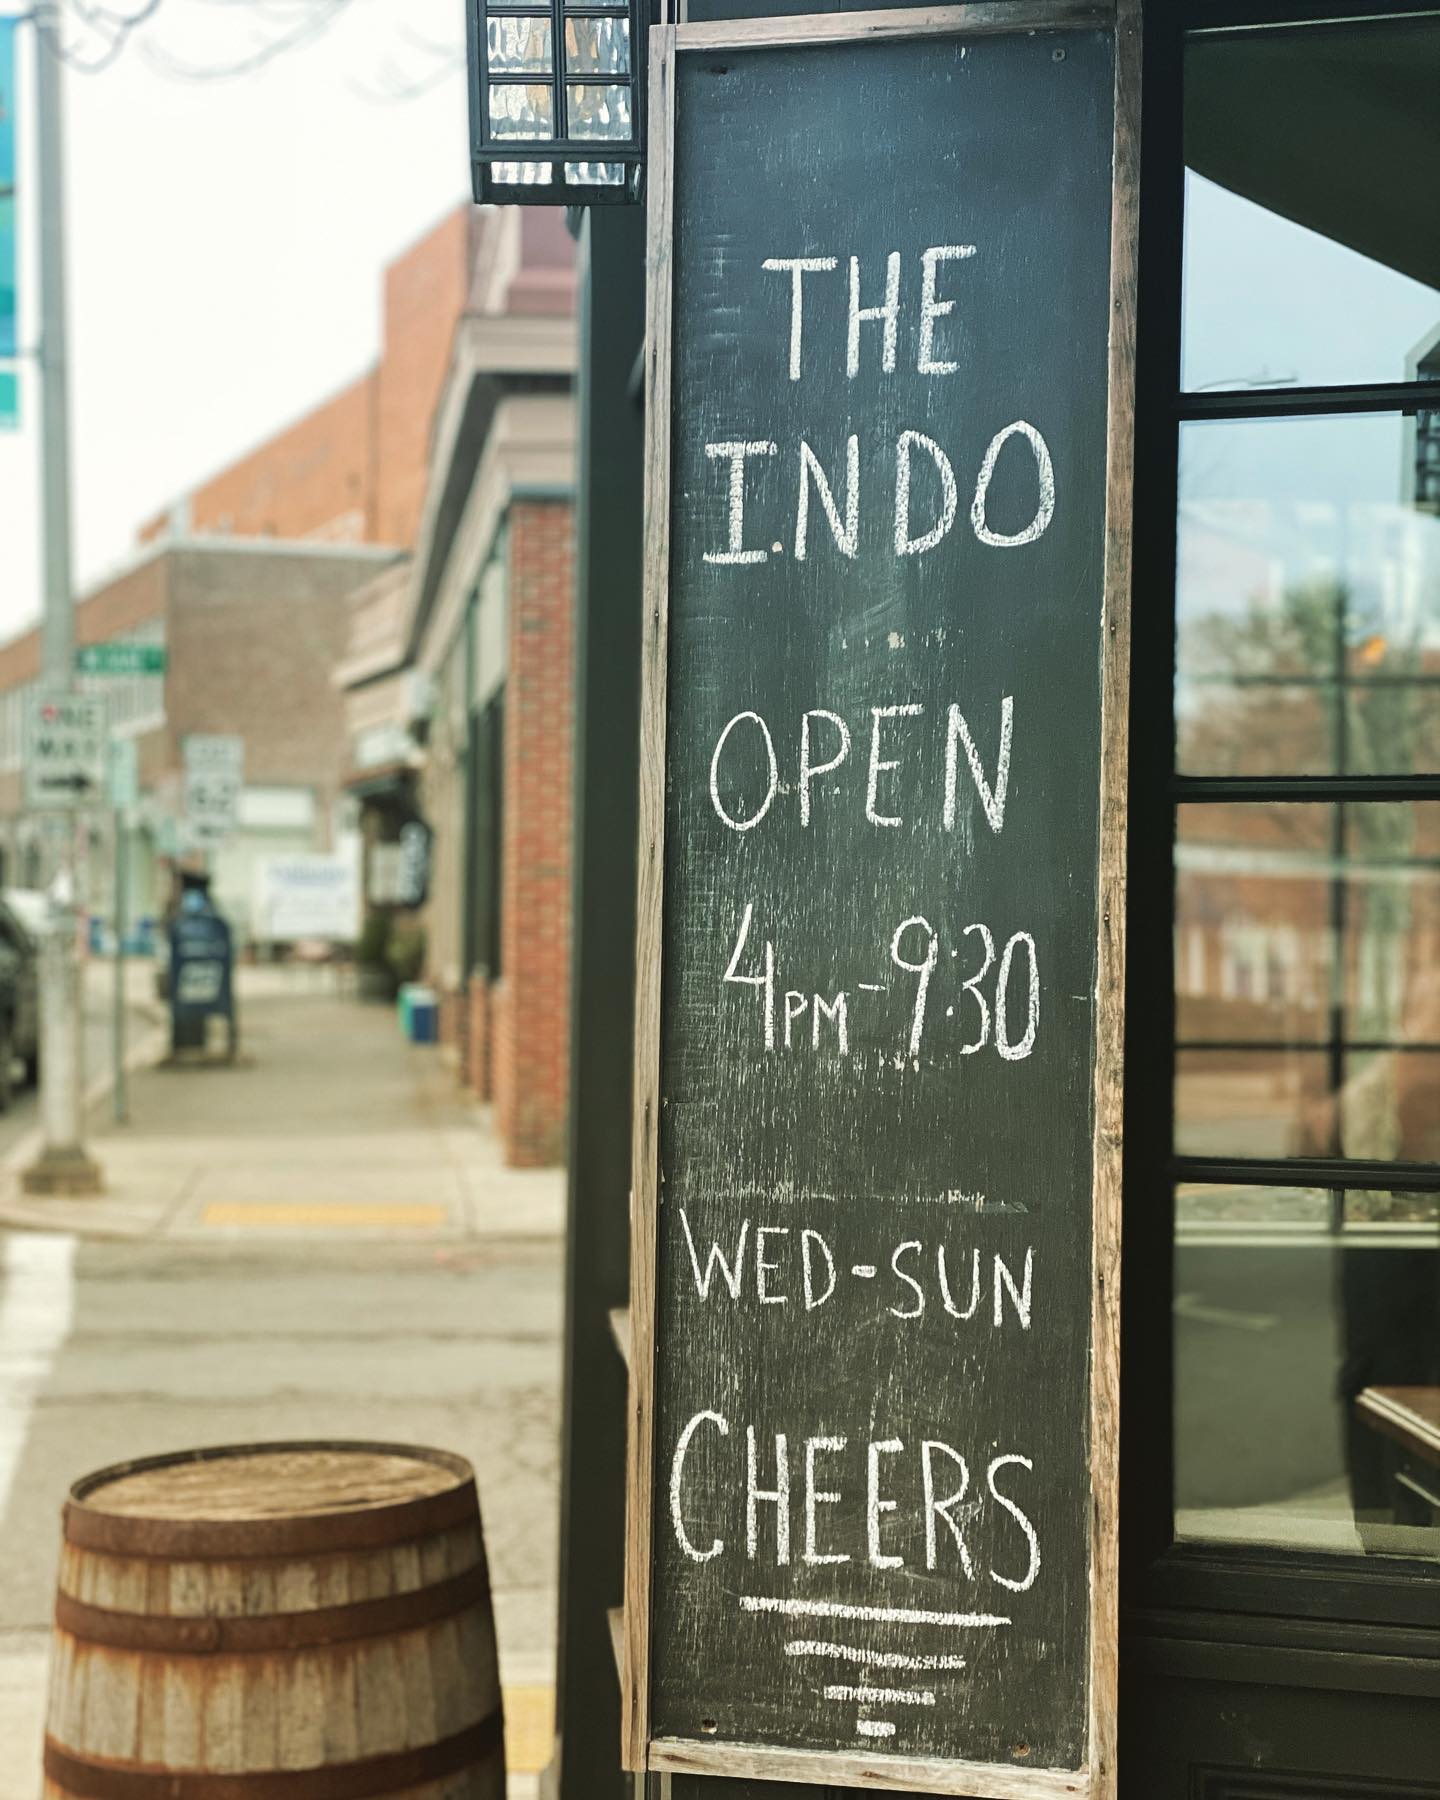 THE
INDO
OPEN
4PM-9:30
WED-SUN
CHEERS
ONE
WAY
62